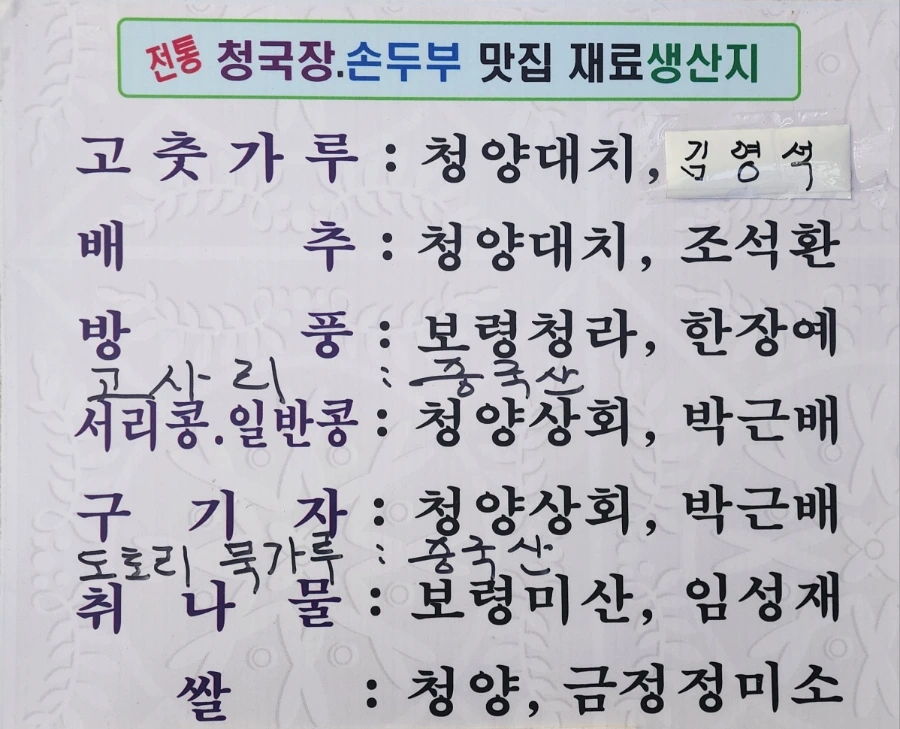 전통 청국장.손두부 맛집 재료생산지
고춧가루 : 청양대치, 김영석
배추 : 청양대치, 조석환
방풍 : 보령청라, 한장예
고사리 : 중국산
서리콩.일반콩 : 청양상회, 박근배
구기자 : 청양상회, 박근배
도토리 묵가루 : 중국산
취나물 : 보령미산, 임성재
쌀 : 청양, 금정정미소